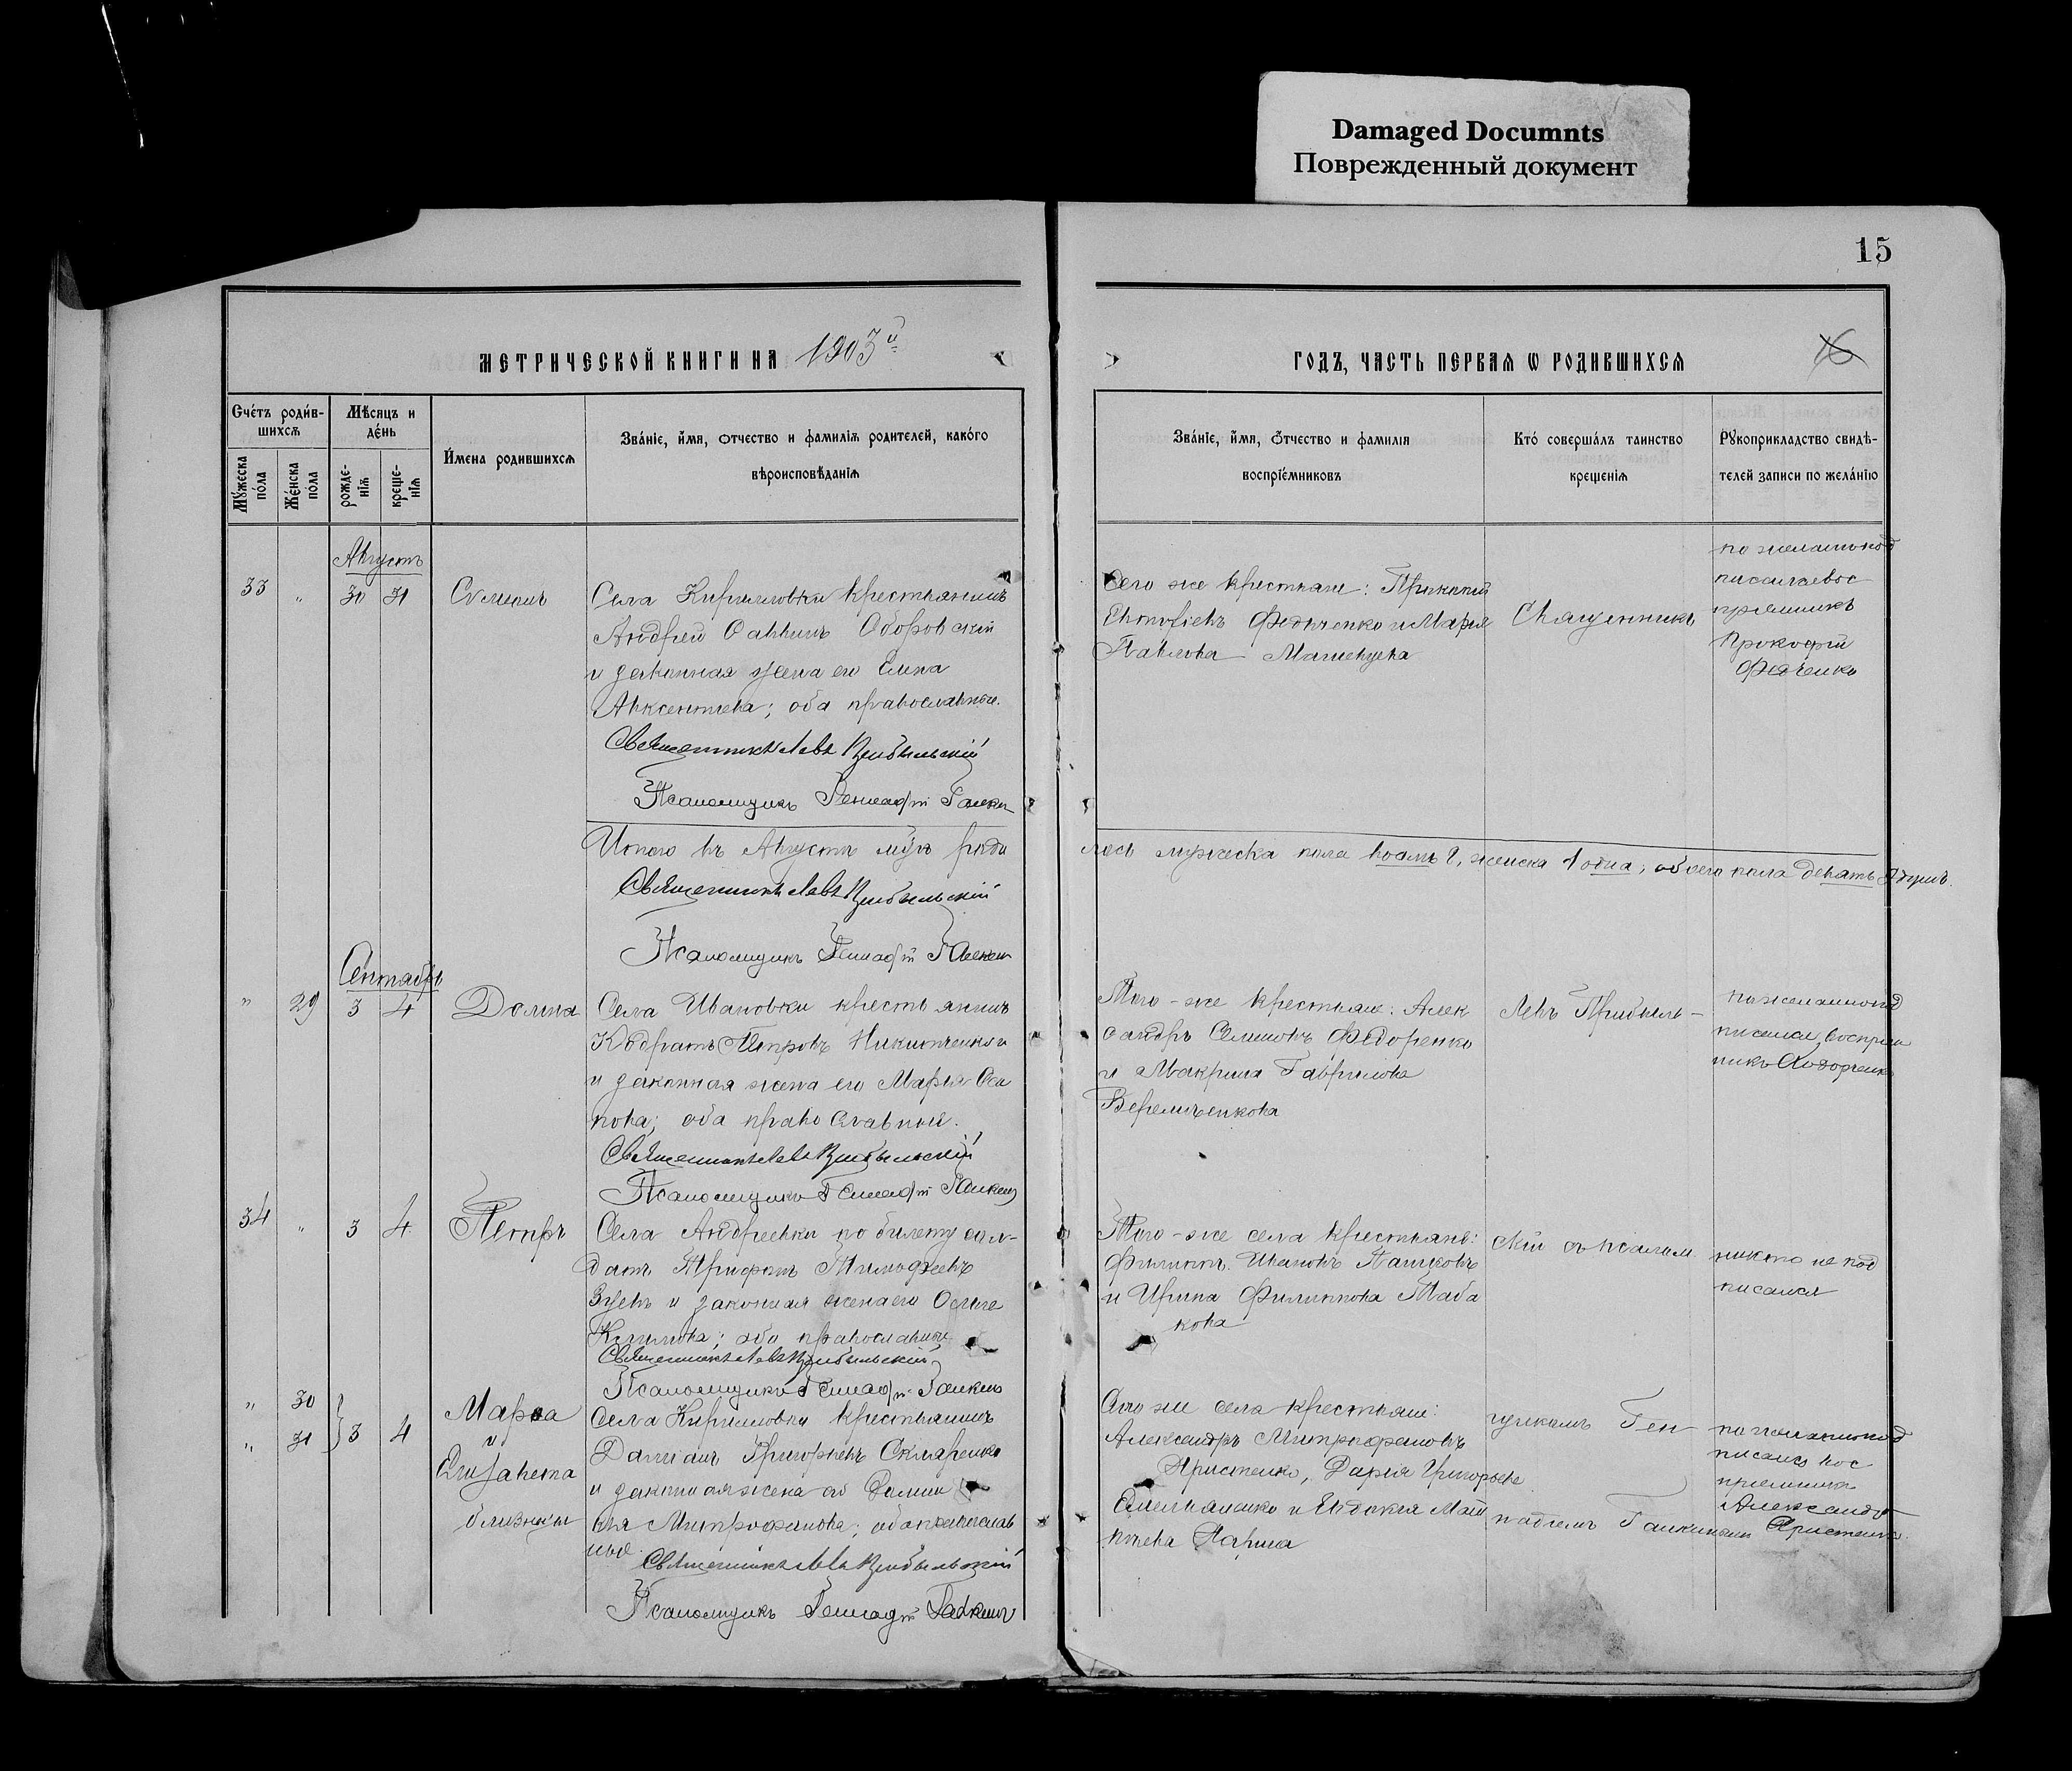 Damaged Documnts
Поврежденный документ
15
МЕТРИЧЕСКОЙ КНИГИ НА 1903 й
ГОДЪ, ЧАСТЬ ПЕРВАЯ Ѡ РОДИВШИХСЯ
16
Счétъ роди́в-
шихсѧ
Мѣсяцъ и
де́нь
Мꙋ́жеска
по́ла
Же́нска
по́ла
рожде-
нїѧ
креще-
нїѧ
И́мена родившихсѧ
Зва́нїе, и́мя, ѻтчество и фамилїѧ родителей, како́го
вѣроисповѣданїѧ
Зва́нїе, и́мя, ѻтчество и фамилїя
воспрїе́мниковъ
Кто́ соверша́лъ таинство
крещенїѧ
Рꙋкоприкладство свидѣ-
телей записи по жела́нїю
Августъ
33 " 30 31
Села Кирилловки крестьянинъ
Андрей Саввинъ Оборовскій
и законная жена его Елена
Авксентіева; оба православные.
Священникъ Левъ Прибыльскій
Псаломщикъ Геннадій Галкинъ
Сего же крестьяне: Прокопій
Федченко и Марія
Павлова
Священникъ
по желанію под
писался вос
пріемникъ
Прокофій
Федченко
Итого въ Августѣ мѣсяцѣ роди
лось мужеска пола восемь 8, женска 1 одна; обоего пола девять 9 душъ.
Священникъ Левъ Прибыльскій
Псаломщикъ Геннадій Галкинъ
Сентябрь
" 29 3 4 Домна
Села Ивановки крестьянинъ
Кодратъ Петровъ Никитченко
и законная жена его Марія Оси
пова; оба православные.
Священникъ Левъ Прибыльскій
Псаломщикъ Геннадій Галкинъ
Того-же крестьяне: Алек
сандръ Семеновъ Федоренко
и Макрина Гаврилова
Веремченкова
Левъ Прибыль-
по желанію под
писался воспріем
никъ
34 " 3 4 Петръ
Села Андреевки по билету сол-
датъ Трифонъ Тимофеевъ
Зуевъ и законная жена его
оба православные
Священникъ Левъ Прибыльскій
Псаломщикъ Геннадій Галкинъ
Того-же села крестьяне:
Филиппъ Ивановъ Пашковъ
и Ирина Филиппова Таба
кова
скій съ псалом
никто не под
писался
" 30
" 31
3 4
Марѳа
и
Елизавета
близнецы
Села Кирилловки крестьянинъ
Даміанъ Григорьевъ Скляренко
и законная жена его
Митрофанова; оба православ
ные.
Священникъ Левъ Прибыльскій
Псаломщикъ Геннадій Галкинъ
Сего же села крестьяне:
Александръ Митрофановъ
Христенко, Дарія Григорьева
Омельяненко и Евдокія Мат
веева Ларина
щикомъ Ген
надіемъ Галкинымъ
по желанію под
писался вос
пріемникъ
Александръ
Христенко